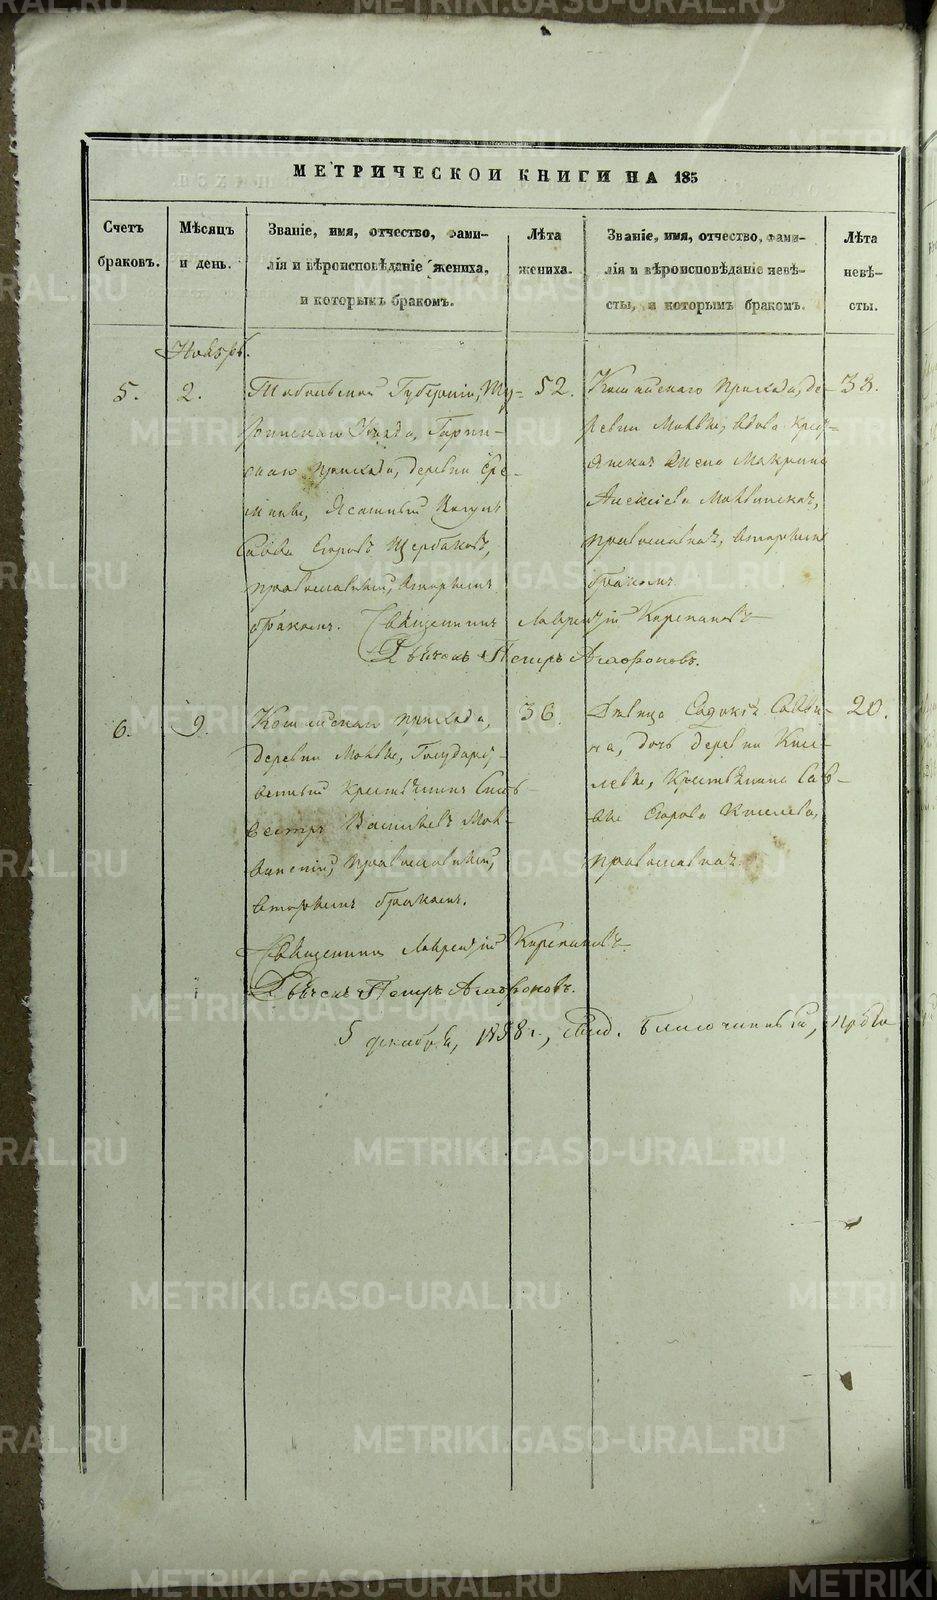 МЕТРИЧЕСКОЙ КНИГИ НА 185
Счетъ браковъ.
Мѣсяцъ и день.
Званіе, имя, отчество, фами-
лія и вѣроисповѣданіе жениха,
и которымъ бракомъ.
Лѣта жениха.
Званіе, имя, отчество, фами-
лія и вѣроисповѣданіе невѣ-
сты, и которымъ бракомъ.
Лѣта невѣ-
сты.
Ноябрь.
5.
2.
Тобольской Губерніи, Ту-
ринскаго Уѣзда, Гарин-
скаго прихода, деревни Ере-
миной, Ясашный Вогулъ
Савва Егоровъ Щербаковъ,
православный, вторымъ
бракомъ.
52.
Кошайскаго прихода, де-
ревни Моквы, вдова Кресть-
янская жена Макрина
Алексѣева Моквинская,
православная, вторымъ
бракомъ.
33.
Священникъ Лаврентій Кирпиковъ
Дьячекъ Петръ Агафоновъ.
6.
9.
Кошайскаго прихода,
деревни Моквы, Государс-
венный Крестьянинъ Силь-
вестръ Васильевъ Мок-
винскій, православный,
вторымъ бракомъ.
36.
Дѣвица Савви-
на, дочь деревни Кисе-
левой, Крестьянина Сав-
вы Егорова Киселева,
православная.
20.
Священникъ Лаврентій Кирпиковъ
Дьячекъ Петръ Агафоновъ.
5 декабря, 1858 г.,
METRIKI.GASO-URAL.RU